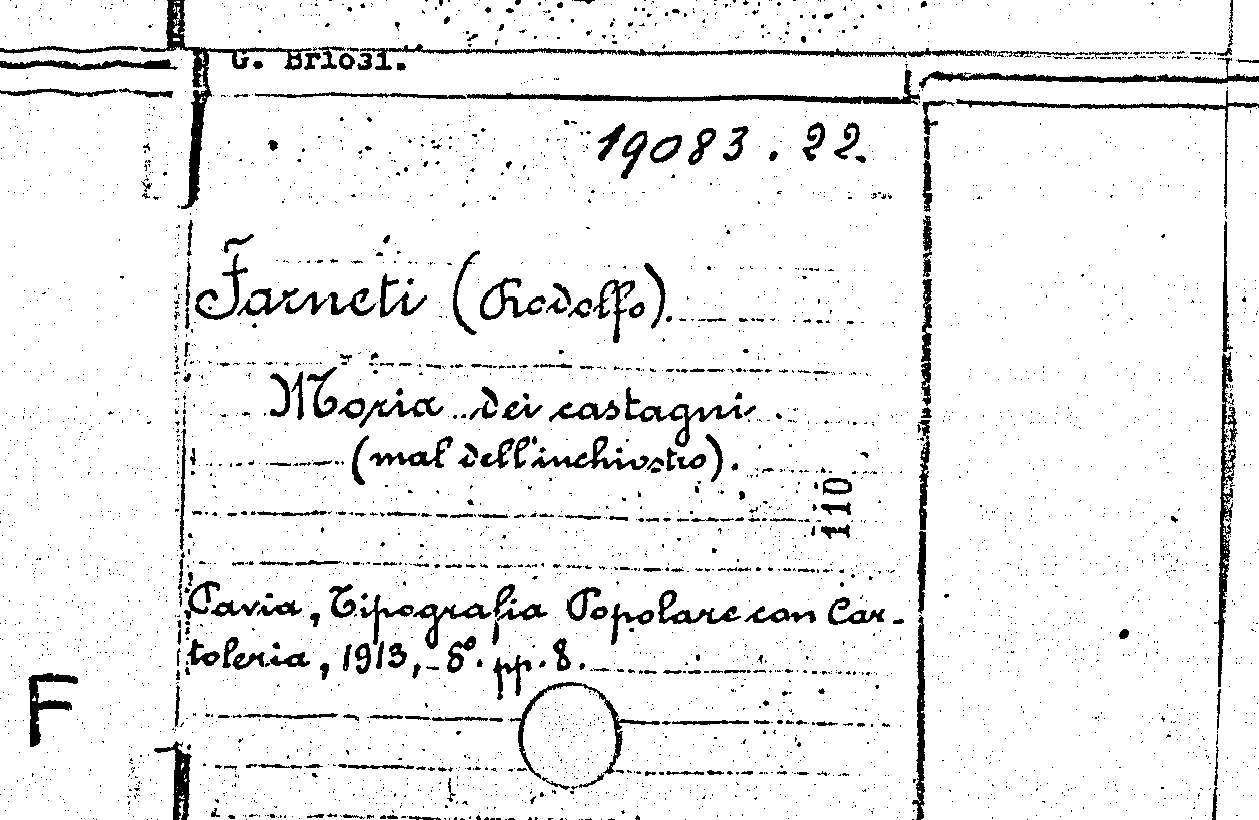 G. Briosi.
19083.22.
Farneti (Rodolfo).
Moria dei castagni
(mal dell'inchiostro).
110
Pavia, Tipografia Popolare con Car-
toleria, 1913, 8º. pp. 8.
F